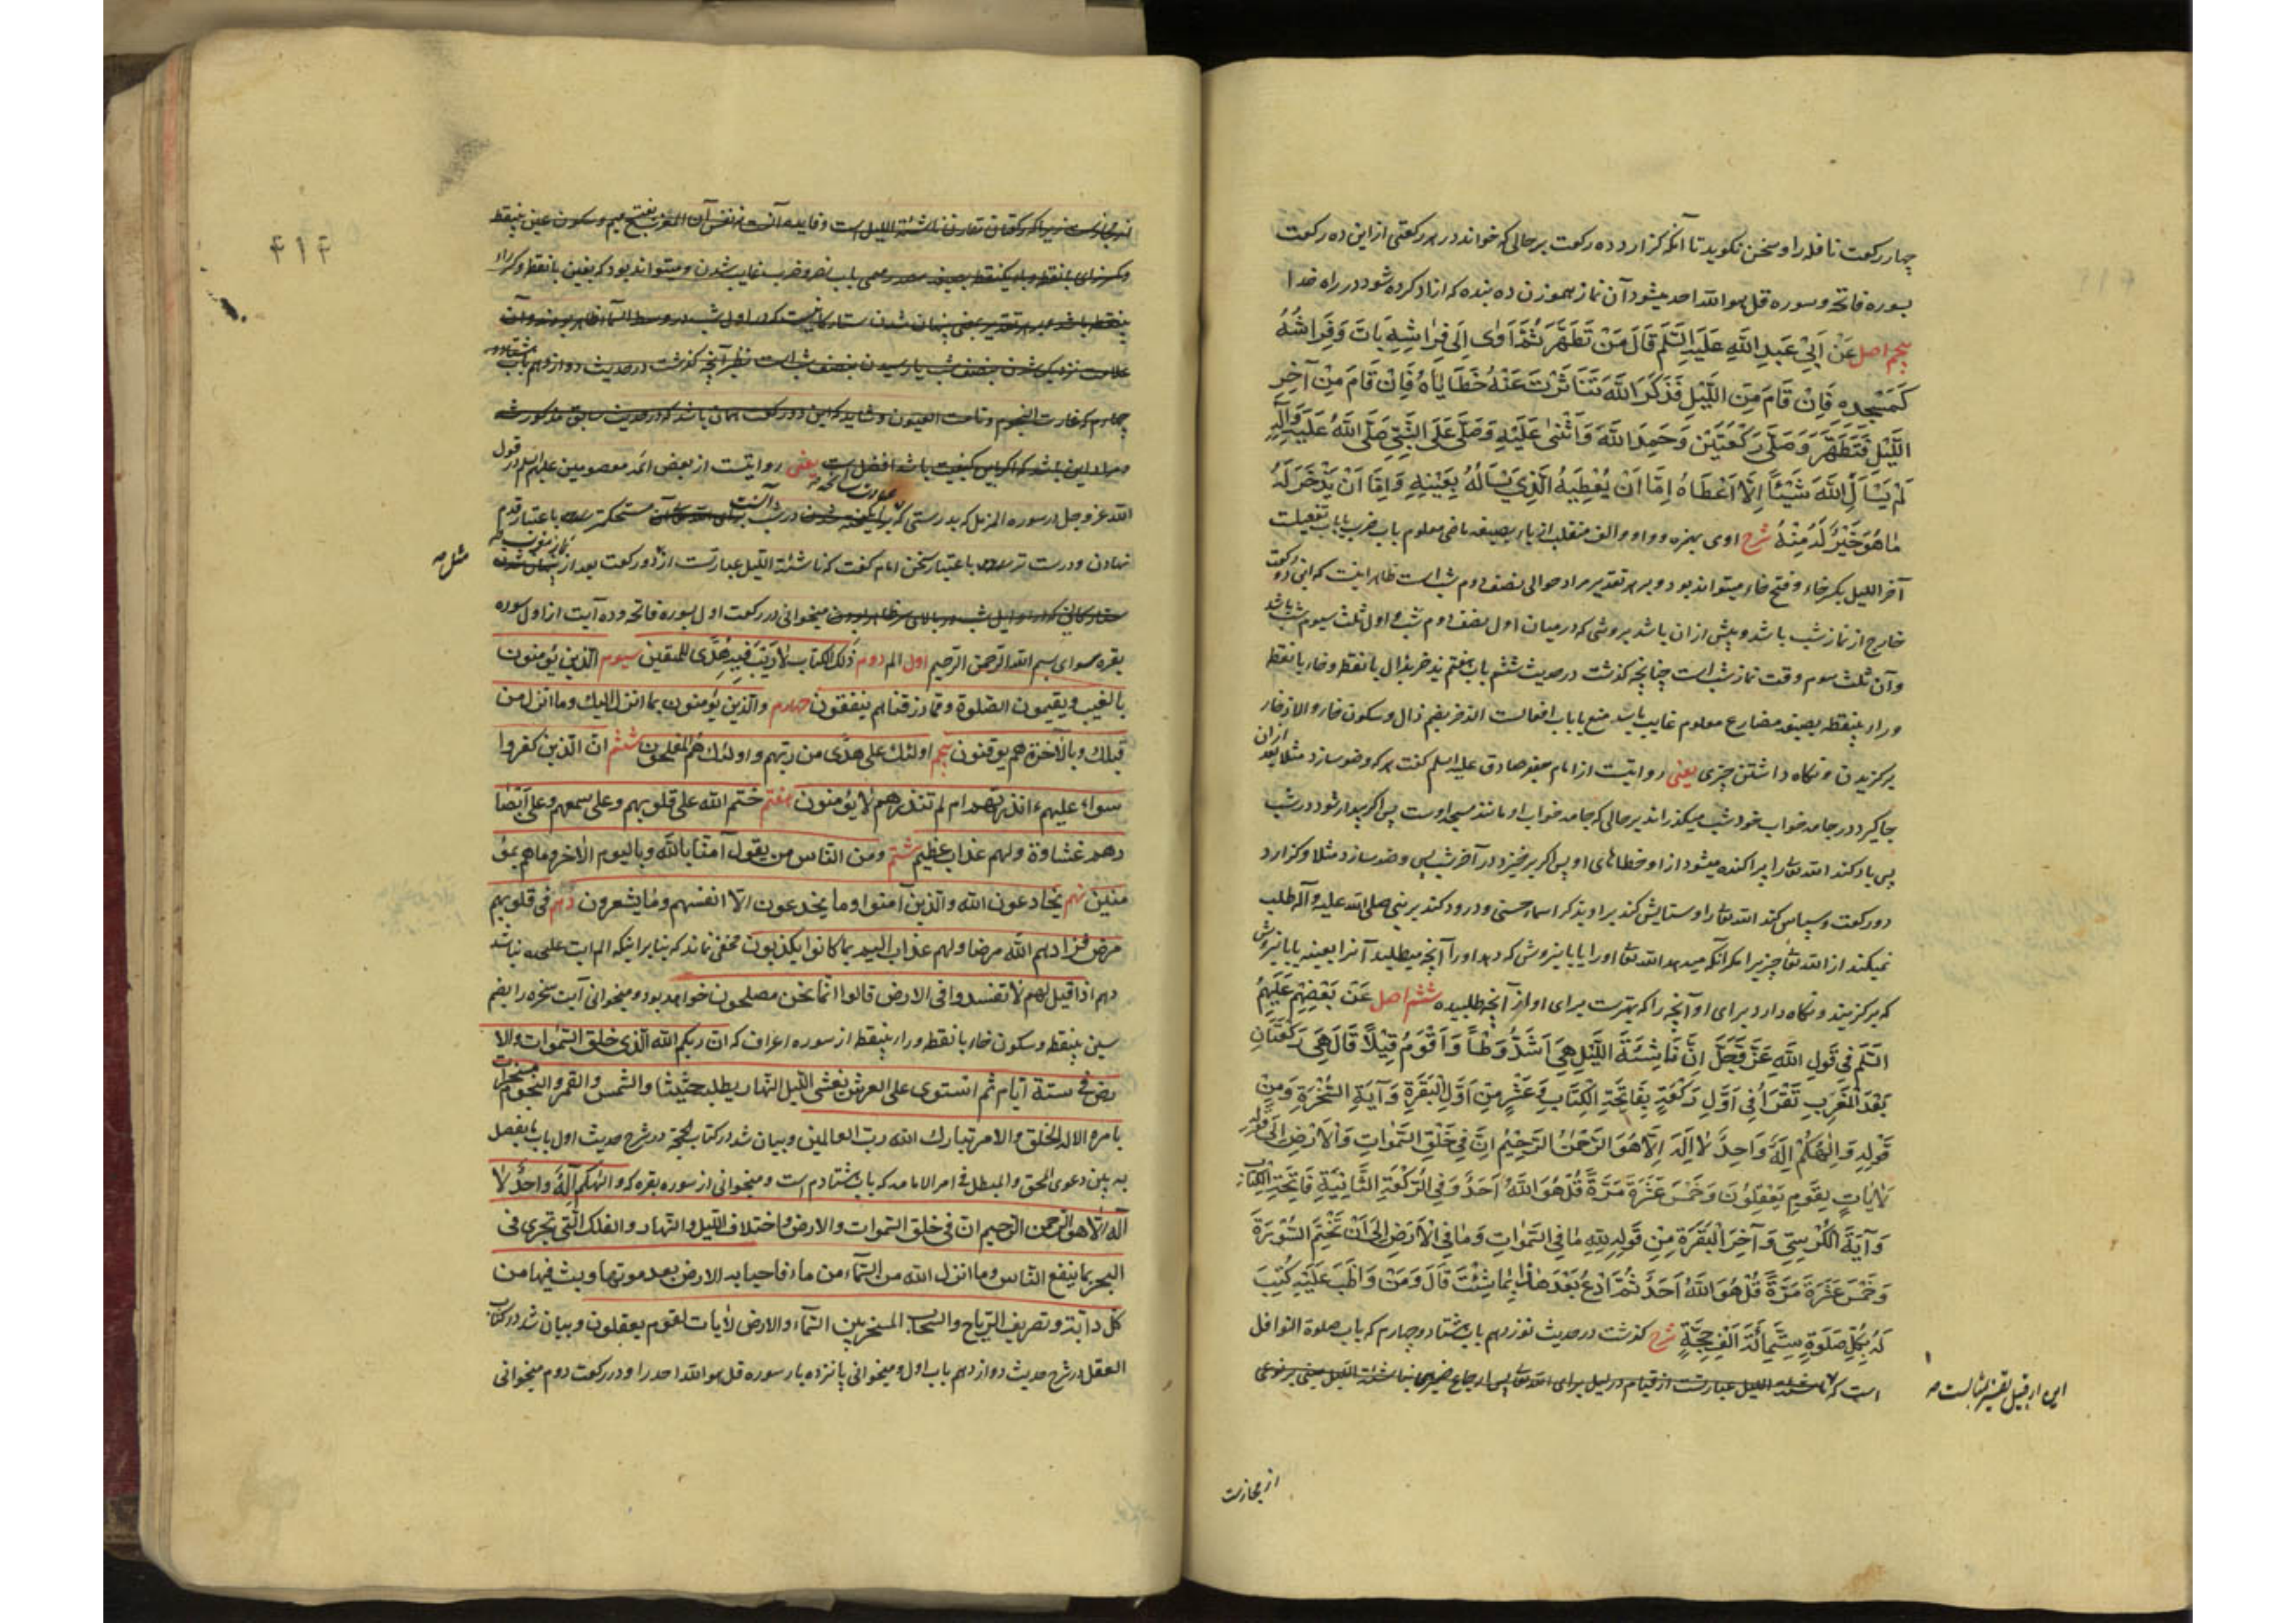 چهار رکعت نافله را و سخن نکوید تا آنکه کزارد ده رکعت بر حالی که خواند در هر رکعتی از این ده رکعت
بسوره فاتحه و سوره قل هو الله احد میشود آن نماز هموزن ده بنده که ازاد کرده شود در راه خدا
پنجم اصل عَنْ اَبِیْ عَبدِ اللّٰهِ عَلَیْهِ السَّلَم قَالَ مَنْ تَطَهَّرَ ثُمَّ اَوٰی اِلَی فِرٰاشِهِ بَاتَ وَفِرَاشُهُ
کَمَسْجِدِهِ فَاِنْ قَامَ مِنَ اللَّیْلِ فَذَکَرَ اللّٰهَ تَنَاثَرْتَ عَنْهُ خَطَایَاهُ فَاِنْ قَامَ مِنْ آخِرِ
اللَّیْلِ فَتَطَهَّرَ وَصَلَّی رَکْعَتَیْنِ وَحَمِدَ اللّٰهَ وَاَثْنٰی عَلَیْهِ وَصَلَّی عَلَی النَّبِیِّ صَلَّی اللّٰهُ عَلَیْهِ وَآلِهِ
لَمْ یَسْأَلِ اللّٰهَ شَیْئًا اِلَّا اَعْطَاهُ اِمَّا اَنْ یُعْطِیَهُ الَّذِی یَسْأَلُهُ بِعَیْنِهِ وَاِمَّا اَنْ یَدَّخِرَ لَهُ
مٰا هُوَ خَیْرٌ لَهُ مِنْهُ شرح اوی بهمزه و واو و الف منقلب از یاء بصیغه ماضی معلوم باب ضرب یا باب تفعیلست
آخر اللیل بکسر خاء و فتح خاء میتواند بود و بر هر تقدیر مراد حوالی نصف دوم شب است ظاهر اینست که این دو رکعت
خارج از نماز شب باشد و پیش از ان باشد بروشی که در میان اول نصف دوم شب و اول ثلث سیوم شب باشد
و آن ثلث سوم وقت نماز شب است چنانچه کذشت در حدیث ششم باب هفتم یدخر بذال با نقطه و خاء با نقطه
و راء بینقطه بصیغه مضارع معلوم غایب باب منع یا باب افعالست الذخر بضم ذال و سکون خاء و الاذخار
برکزیدن و نکاه داشتن چیزی یعنی روایتست از امام جعفر صادق علیه السلم کفت هر که وضو سازد مثلا بعد از ان
جا کیرد در جامه خواب خود شب میکذراند بر حالی که جامه خواب او مانند مسجد اوست پس اکر بیدار شود در شب
پس یاد کند الله تعالی را پراکنده میشود از او خطاهای او پس اکر برخیزد در آخر شب پس وضو سازد مثلا و کزارد
دو رکعت و سپاس کند الله تعالی را و ستایش کند بر او بذکر اسماء حسنی و درود کند بر نبی صلی الله علیه و آله طلب
نمیکند از الله تعالی چیزی را مکر آنکه میدهد الله تعالی او را یا باینروش که دهد او را آنچه میطلبد آنرا بعینه یا باینروش
که برکزیند و نکاه دارد برای او آنچه را که بهترست برای او از آنچه طلبیده ششم اصل عَنْ بَعْضِهِمْ عَلَیْهِمُ
السَّلَم فِی قَوْلِ اللّٰهِ عَزَّ وَجَلَّ اِنَّ نَاشِئَةَ اللَّیْلِ هِیَ اَشَدُّ وَطْأً وَاَقْوَمُ قِیْلًا قَالَ هِیَ رَکْعَتَانِ
بَعْدَ الْمَغْرِبِ تَقْرَأُ فِی اَوَّلِ رَکْعَةٍ بِفَاتِحَةِ الْکِتَابِ وَعَشْرٍ مِنْ اَوَّلِ الْبَقَرَةِ وَآیَةِ السُّخْرَةِ وَمِنْ
قَوْلِهِ وَاِلٰهُکُمْ اِلٰهٌ وَاحِدٌ لٰا اِلٰهَ اِلَّا هُوَ الرَّحْمٰنُ الرَّحِیْمُ اِنَّ فِی خَلْقِ السَّمٰوَاتِ وَالْاَرْضِ اِلَی قَوْلِهِ
لَاٰیَاتٍ لِقَوْمٍ یَعْقِلُوْنَ وَخَمْسَ عَشْرَةَ مَرَّةً قُلْ هُوَ اللّٰهُ اَحَدٌ وَفِی الرَّکْعَةِ الثَّانِیَةِ فَاتِحَةِ الْکِتَابِ
وَآیَةَ الْکُرْسِیِّ وَآخِرَ الْبَقَرَةِ مِنْ قَوْلِهِ لِلّٰهِ مٰا فِی السَّمٰوَاتِ وَمٰا فِی الْاَرْضِ اِلَی اَنْ تَخْتِمَ السُّوْرَةَ
وَخَمْسَ عَشْرَةَ مَرَّةً قُلْ هُوَ اللّٰهُ اَحَدٌ ثُمَّ ادْعُ بَعْدَ هٰذٰا بِمٰا شِئْتَ قَالَ وَمَنْ وَاظَبَ عَلَیْهِ کُتِبَ
لَهُ بِکُلِّ صَلَوةٍ سِتُّمِائَةِ اَلْفِ حِجَّةٍ شرح کذشت در حدیث نوزدهم باب هشتاد و چهارم که باب صلوة النوافل
است که ناشئة اللیل عبارتست از قیام در لیل برای الله تعالی پس ارجاع ضمیر هی بناشئة اللیل مبنی بر نوعی
این از قبیل تفسیر بمثالست
از مجازست
۴۱۴
از مجازست زیرا که رکعتان مقارن ناشئة اللیل است
علامت نزدیک شدن نصف شب یا رسیدن بنصف شب است نظیر آنچه کذشت در حدیث دوازدهم باب هشتاد و
چهارم که غارت النجوم و نامت العیون و شاید که این دو رکعت همان باشد که در حدیث سابق مذکور شد
و مراد این باشد که اکر باین کیفیت باشد افضل است یعنی روایتست از بعض ائمه معصومین علیهم السلم در قول
الله عز و جل در سوره المزمل که بدرستی که در شب آنست مستحکمتر باعتبار قدم
نهادن و درست تر باعتبار سخن امام کفت که ناشئة اللیل عبارتست از دو رکعت بعد از نماز مغرب
مثل
میخوانی در رکعت اول بسوره فاتحه و ده آیت از اول سوره
بقره سوای بسم الله الرحمن الرحیم اول الم دوم ذلک الکتاب لا ریب فیه هدی للمتقین سیوم الذین یؤمنون
بالغیب و یقیمون الصلوة و مما رزقناهم ینفقون چهارم و الذین یؤمنون بما انزل الیک وما انزل من
قبلک و بالآخرة هم یوقنون پنجم اولئک علی هدی من ربهم و اولئک هم المفلحون ششم ان الذین کفروا
سواء علیهم ءانذرتهم ام لم تنذرهم لا یؤمنون هفتم ختم الله علی قلوبهم وعلی سمعهم وعلی ابصا
رهم غشاوة ولهم عذاب عظیم هشتم ومن الناس من یقول آمنا بالله و بالیوم الآخر وما هم بمؤ
منین نهم یخادعون الله والذین آمنوا وما یخدعون الا انفسهم وما یشعرون دهم فی قلوبهم
مرض فزادهم الله مرضا ولهم عذاب الیم بما کانوا یکذبون مخفی نماند که بنا بر اینکه الم ایت علیحده نباشد
دهم اذا قیل لهم لا تفسدوا فی الارض قالوا انما نحن مصلحون خواهد بود و میخوانی آیت سخره را بضم
سین بینقطه و سکون خاء با نقطه و راء بینقطه از سوره اعراف که ان ربکم الله الذی خلق السموات والا
رض فی ستة ایام ثم استوی علی العرش یغشی اللیل النهار یطلبه حثیثا والشمس والقمر والنجوم مسخرات
بامره الا له الخلق والامر تبارک الله رب العالمین و بیان شد در کتاب الحجة در شرح حدیث اول باب ما یفصل
به بین دعوی المحق والمبطل فی امر الامامة که باب هشتادم است و میخوانی از سوره بقره که والهکم اله واحد لا
اله الا هو الرحمن الرحیم ان فی خلق السموات والارض واختلاف اللیل والنهار والفلک التی تجری فی
البحر بما ینفع الناس وما انزل الله من السماء من ماء فاحیا به الارض بعد موتها وبث فیها من
کل دابة وتصریف الریاح والسحاب المسخر بین السماء والارض لآیات لقوم یعقلون و بیان شد در کتاب
العقل در شرح حدیث دوازدهم باب اول و میخوانی پانزده بار سوره قل هو الله احد را و در رکعت دوم میخوانی